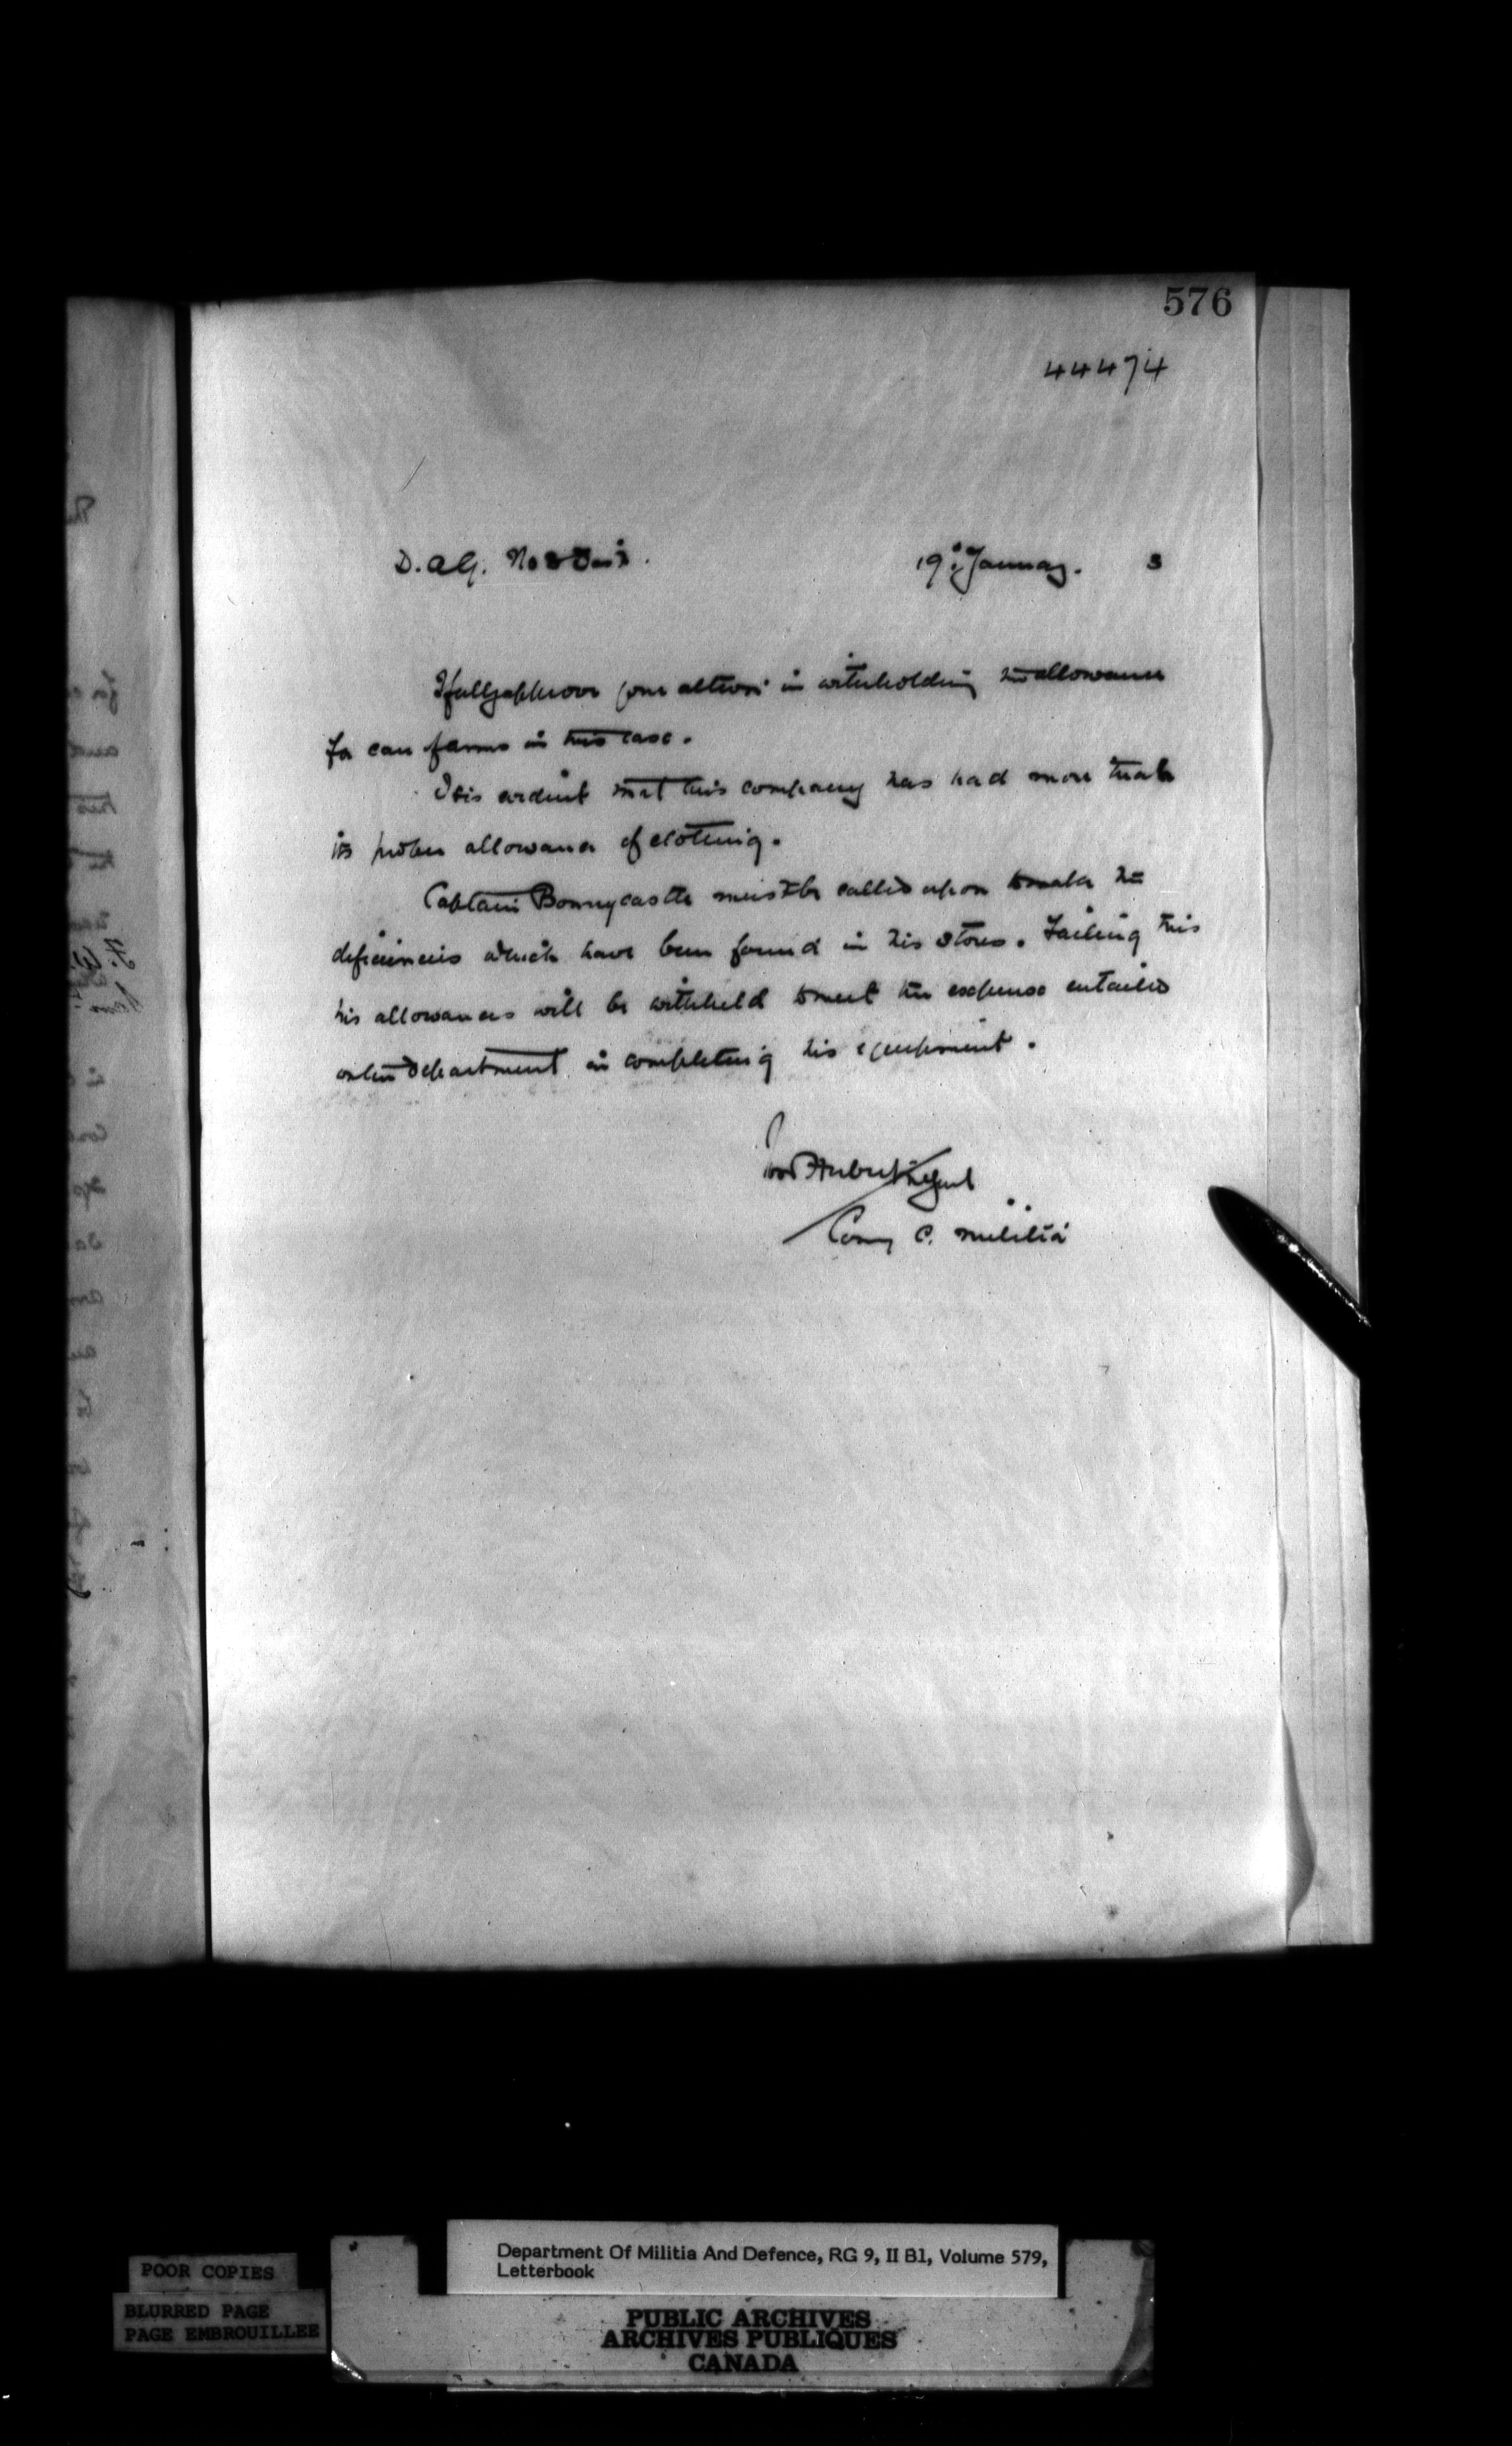 576
44474
D.A.G. No 3 Dis.
19th January. 3
I fully approve your action in withholding the allowance
for care of arms in this case.
It is evident that this company has had more than
its proper allowance of clothing.
Captain Bonnycastle must be called upon to make the
deficiencies which have been found in his stores. Failing this
his allowances will be withheld to meet the expense entailed
on the Department in completing his equipment.
Comg C. Militia
POOR COPIES
BLURRED PAGE
PAGE EMBROUILLEE
Department Of Militia And Defence, RG 9, II B1, Volume 579,
Letterbook
PUBLIC ARCHIVES
ARCHIVES PUBLIQUES
CANADA